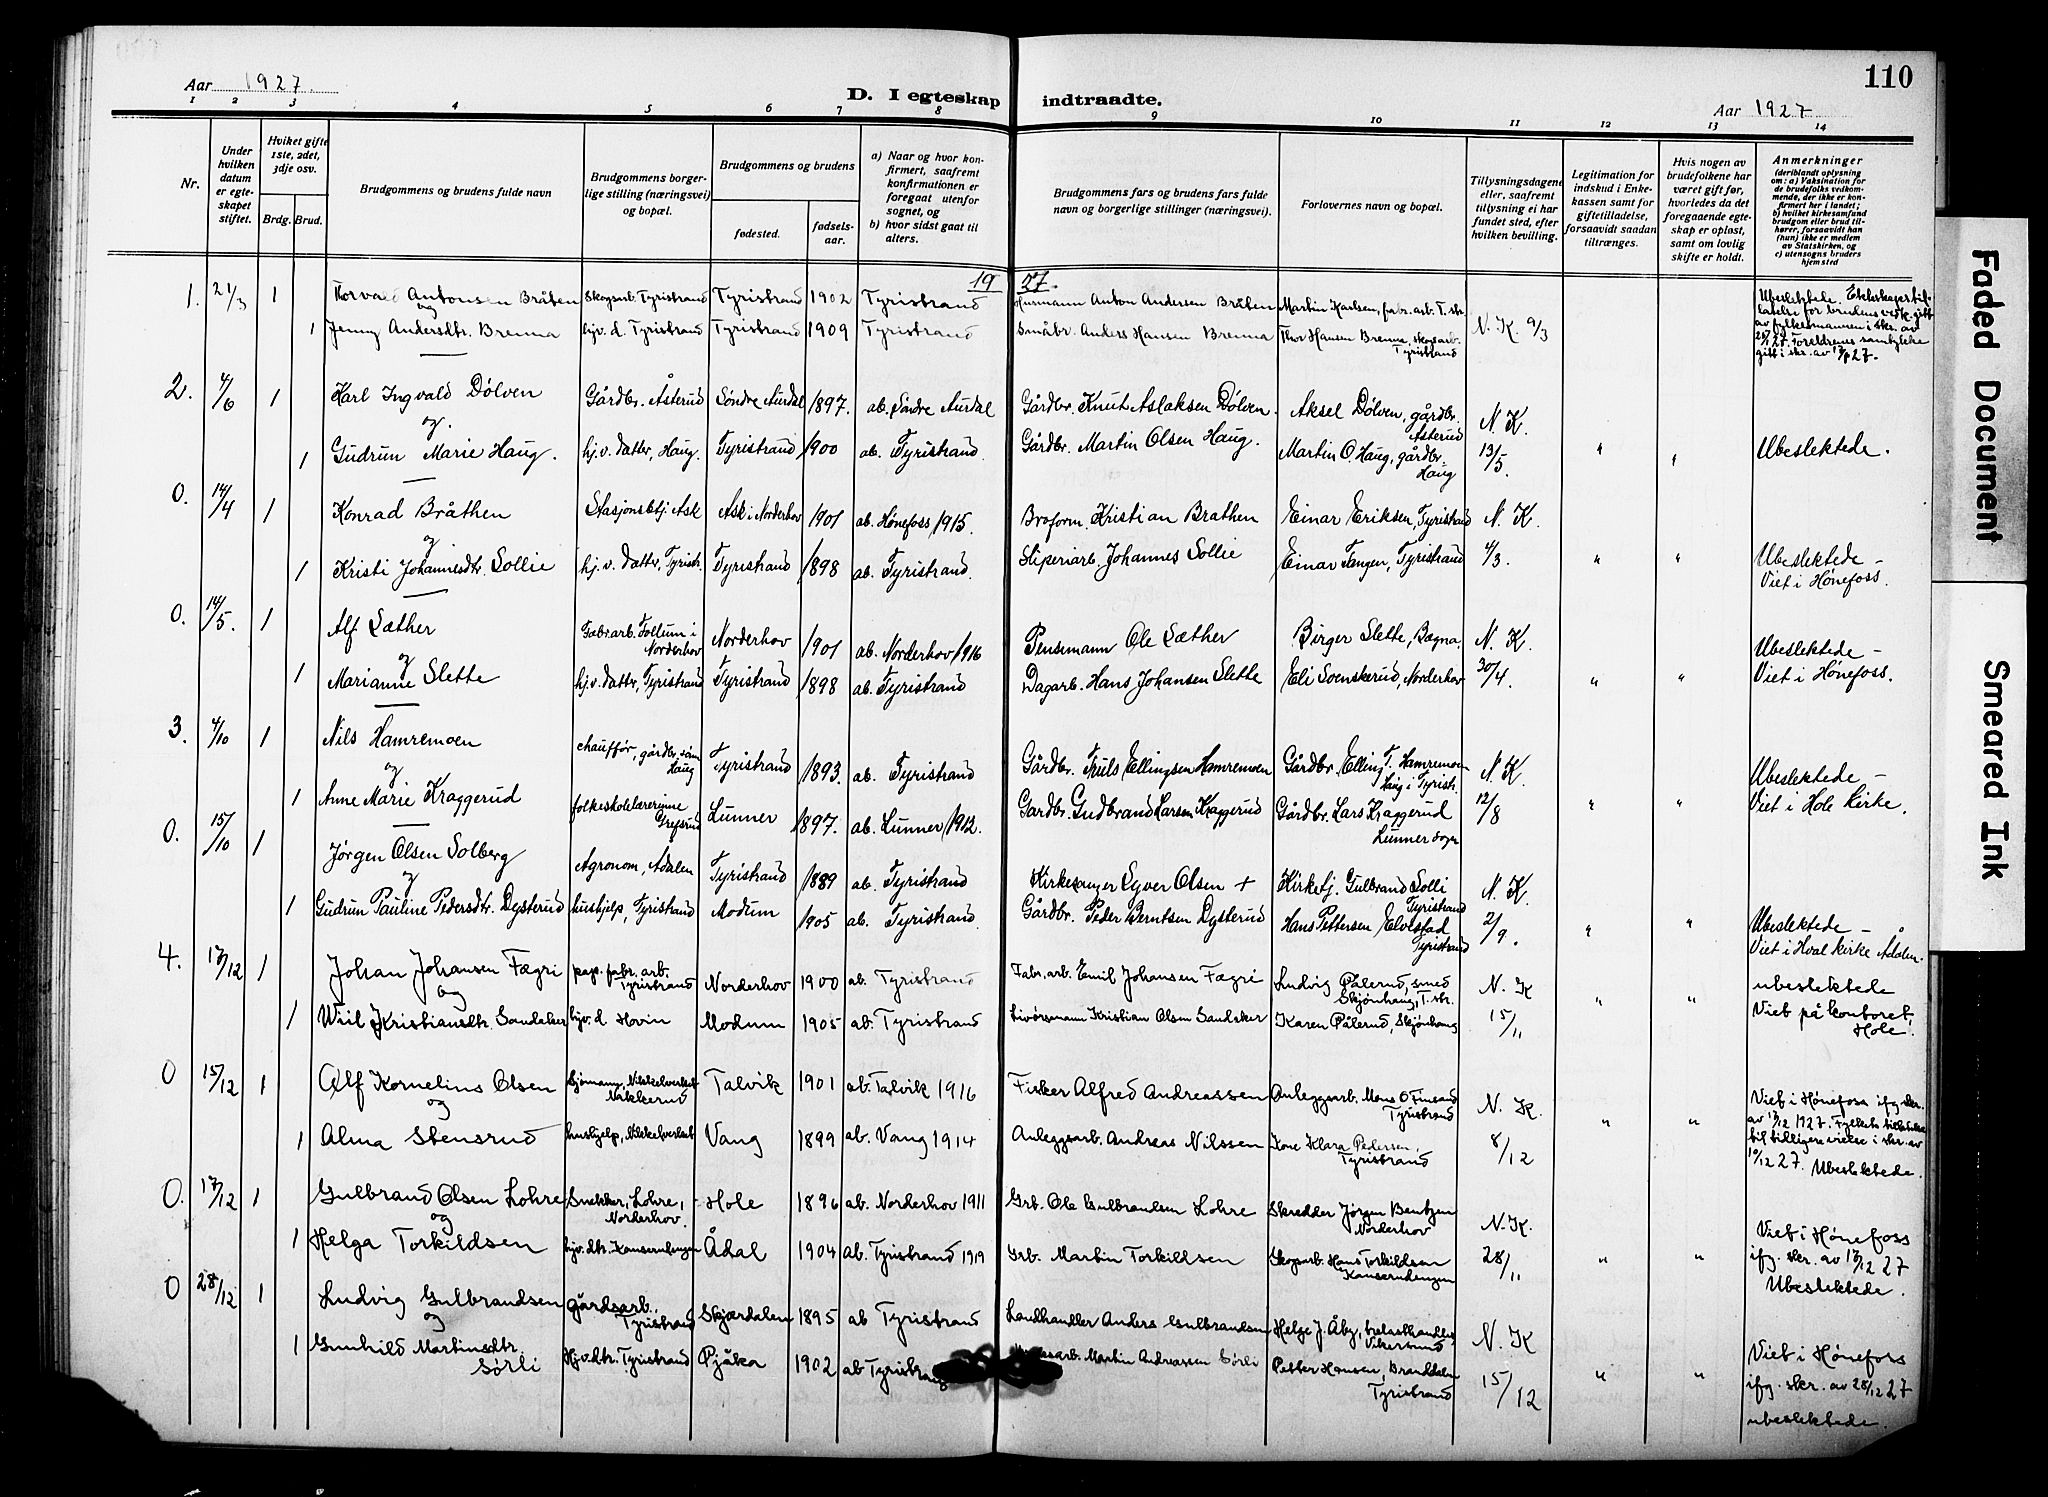 110
Aar 1927.
D. I egteskap indtraadte.
Aar 1927
1 2 3 4 5 6 7 8 9 10 11 12 13 14
Nr.
Under hvilken datum er egteskapet stiftet.
Hviket gifte 1ste, 2det, 3dje osv.
Brdg. Brud.
Brudgommens og brudens fulde navn
Brudgommens borgerlige stilling (næringsvei) og bopæl.
Brudgommens og brudens
fødested. fødselsaar.
a) Naar og hvor konfirmert, saafremt konfirmationen er foregaat utenfor sognet, og
b) hvor sidst gaat til alters.
Brudgommens fars og brudens fars fulde navn og borgerlige stillinger (næringsvei).
Forlovernes navn og bopæl.
Tillysningsdagene eller, saafremt tillysning ei har fundet sted, efter hvilken bevilling.
Legitimation for indskud i Enkekassen samt for giftetilladelse, forsaavidt saadan tiltrænges.
Hvis nogen av brudefolkene har været gift før, hvorledes da det foregaaende egteskap er opløst, samt om lovlig skifte er holdt.
Anmerkninger
(deriblandt oplysning om: a) Vaksination for de brudefolks vedkommende, der ikke er konfirmert her i landet;
b) hvilket kirkesamfund brudgom eller brud tilhører, forsaavidt han (hun) ikke er medlem av Statskirken, og
c) utensogns bruders hjemsted
19 27.
1. 21/3 1 Torvald Antonsen Bråten Skogsarb. Tyristrand Tyristrand 1902 Tyristrand Husmann Anton Andersen Bråten Martin Karlsen, fabr. arb. T. str.
og
1 Jenny Andersdtr. Brenna hjv. d. Tyristrand Tyristrand 1909 Tyristrand Småbr. Anders Hansen Brenna Thor Hansen Brenna, skogsarb. Tyristrand N. K. 9/3
Ubeslektede. Ekteskapstillatelse for brudens vedk. gitt av fylkesmannen i skr. av 28/1 27. Foreldrenes samtykke gitt i skr. av 17/1 27.
2. 4/6 1 Karl Ingvald Dølven Gårdbr. Åsterud Søndre Aurdal 1897. ab. Søndre Aurdal Gårdbr. Knut Aslaksen Dølven. Aksel Dølven, gårdbr. Asterud N. K.
og.
1 Gudrun Marie Haug. hj. v. datter, Haug. Tyristrand 1900 ab. Tyristrand. Gårdbr. Martin Olsen Haug. Martin O. Haug, gårdbr. Haug 13/5. " " Ubeslektede.
0. 14/4 1 Konrad Bråthen Stasjonsbtj. Ask Ask i Norderhov 1901 ab. Hønefoss 1915. Broform. Kristian Brathen Einar Eriksen, Tyristrand N. K.
og
1 Kristi Johannesdtr. Sollie hj. v. datter, Tyristr. Tyristrand 1898 ab. Tyristrand. Sliperiarb. Johannes Sollie Einar Fangen, Tyristrand 4/3. " " Ubeslektede –
Viet i Hønefoss.
0. 14/5. 1 Alf Sæther Fabr.arb. Follum i Norderhov Norderhov 1901 ab. Norderhov 1916 Pensemann Ole Sæther Birger Slette, Bægna. N. K.
og
1 Marianne Slette hj. v. datter, Tyristrand Tyristrand 1898 ab. Tyristrand Dagarb. Hans Johansen Slette Eli Svenskerud, Norderhov 30/4. " " Ubeslektede –
Viet i Hønefoss.
3. 4/10 1 Nils Hamremoen chauffør, gårdbr. søn Haug Tyristrand 1893. ab. Tyristrand Gårdbr. Truls Ellingsen Hamremoen Gårdbr. Elling T. Hamremoen Haug i Tyristr. N. K.
og
1 Anne Marie Kraggerud folkeskolelærerinne Grefsrud Lunner 1897. ab. Lunner 1912. Gardbr. Gudbrand Larsen Kraggerud Gårdbr. Lars Kraggerud Lunner sogn 12/8 " " Ubeslektede –
Viet i Hole Kirke.
0. 15/10 1 Jørgen Olsen Solberg Agronom, Adalen Tyristrand 1889 ab. Tyristrand Kirkesanger Syver Olsen + Kirketj. Gulbrand Solli Tyristrand N. K.
og
1 Gudrun Pauline Pedersdtr. Dysterud hushjelp, Tyristrand Modum 1905 ab. Tyristrand. Gårdbr. Peder Berntsen Dysterud Hans Pettersen Elvestad Tyristrand 2/9. " " Ubeslektede –
Viet i Hval kirke Ådalen.
4. 17/12 1 Johan Johansen Fægri pap. fabr. arb. Tyristrand Norderhov 1900 ab. Tyristrand Fabr. arb. Emil Johansen Fægri Ludvig Pålerud, smed Skjønhaug, T. str. N. K
og
1 Wiil Kristiansdtr. Sandaker hjv. d Hovin Modum 1905 ab. Tyristrand Kristian Olsen Sandaker Karen Pålerud, Skjønhaug 15/11 " " ubeslektede
Viet på kontoret, Hole.
0 15/12 1 Alf Kornelius Olsen Sjømann, Nikkelverket Nakkerud Talvik 1901 ab. Talvik 1916 Fisker Alfred Andreassen Anleggsarb. Mons O Finsand Tyristrand N. K.
og
1 Alma Stensrud hushjelp, Nikkelverket Vang 1899 ab. Vang 1914 Anleggsarb. Andreas Nilssen Kone Klara Pedersen, Tyristrand 8/12 " "
Viet i Hønefoss ifg skr. av 17/12 1927. Fylkets tillatelse til tidligere vielse i skr. av 10/12 27. Ubeslektede.
0. 17/12 1 Gulbrand Olsen Lohre Snekker, Lohre, Norderhov. Hole 1896 ab. Norderhov 1911 Grb. Ole Gulbrandsen Lohre Skredder Jørgen Bentzen Norderhov N. K.
og
1 Helga Torkildsen hjv. dtr. Kanserudengen Ådal 1904 ab. Tyristrand 1919 Grb. Martin Torkildsen Skogsarb. Hans Torkildsen Kanserudengen 28/11 " "
Viet i Hønefoss
ifg. skr. av 17/12 27
Ubeslektede.
0 28/12 1 Ludvig Gulbrandsen gårdsarb. Tyristrand Skjærdalen 1895 ab Tyristrand Landhandler Anders Gulbrandsen Helge J. Åby, trelasthandler, Vikersund N. K
og
1 Gunhild Martinsdtr. Sørli Hjv. dtr. Tyristrand Pjåka 1902 ab Tyristrand Martin Andreassen Sørli Petter Hansen, Branddalen Tyristrand 15/12 " "
Viet i Hønefoss
ifg. skr. av 28/12 27
ubeslektede.
Faded Document
Smeared Ink